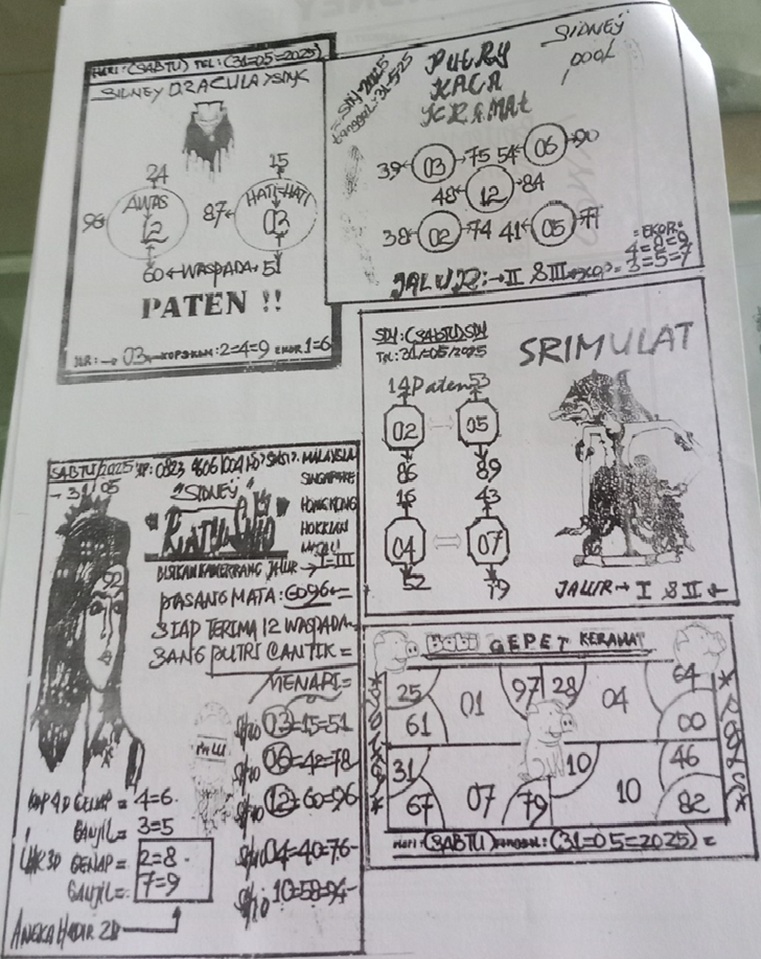 HARI: (SABTU) TGL: (31=05=2025)
SIDNEY DRACULA >SDY<
24
15
AWAS
12
96
HATI-HATI
03
87
60 WASPADA 51
PATEN !!
03 KOP 2=4=9 EKOR 1=6
SDY-2025
tanggal: 31-5-25
PUTRY
KACA
KRAMAt
SIDNEY
POOL
39 03 75
54 06 90
48 12 84
38 02 74
41 05 77
=EKOR=
4=8=9
3=5=7
JALUR: → II & III
SDY: (SABTU) SDY
TGL: 31/=05/2025
SRIMULAT
14 Paten 53
02 05
86 89
16 43
04 07
52 79
JALUR → I & II
SABTU/2025 HP: 0823
MALAYSIA
- 31/05
"SIDNEY"
SINGAPORE
HONGKONG
RATU
92
JALUR → I=III
PASANG MATA: 6096
SIAP TERIMA 12 WASPADA
SANG PUTRI CANTIK =
MENARI=
03=15=51
06=42=78
12=60=96
04=40=76-
10=58=94-
KOP 4D GENAP = 4=6.
GANJIL= 3=5
3D GENAP = 2=8.
GANJIL= 7=9
ANGKA HADIR 2D
Babi GEPET KERAMAT
25 01 97 28 04 64
61 00
31 10 46
67 07 79 10 82
HARI: (SABTU) TANGGAL: (31=05=2025) =